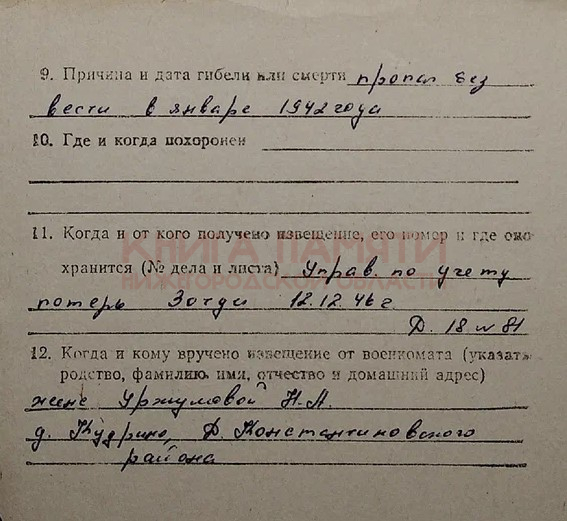 9. Причина и дата гибели или смерти пропал без
вести в январе 1942 года
10. Где и когда похоронен
11. Когда и от кого получено извещение, его номер и где оно
КНИГА ПАМЯТИ
хранится (№ дела и листа) Управ. по учету
НИЖЕГОРОДСКОЙ ОБЛАСТИ
потерь 12.12.46 г.
Д. 18 л 81
12. Когда и кому вручено извещение от военкомата (указать
родство, фамилию, имя, отчество и домашний адрес)
жене Уржумовой Н.А.
д. Кудрино, Д. Константиновского
района